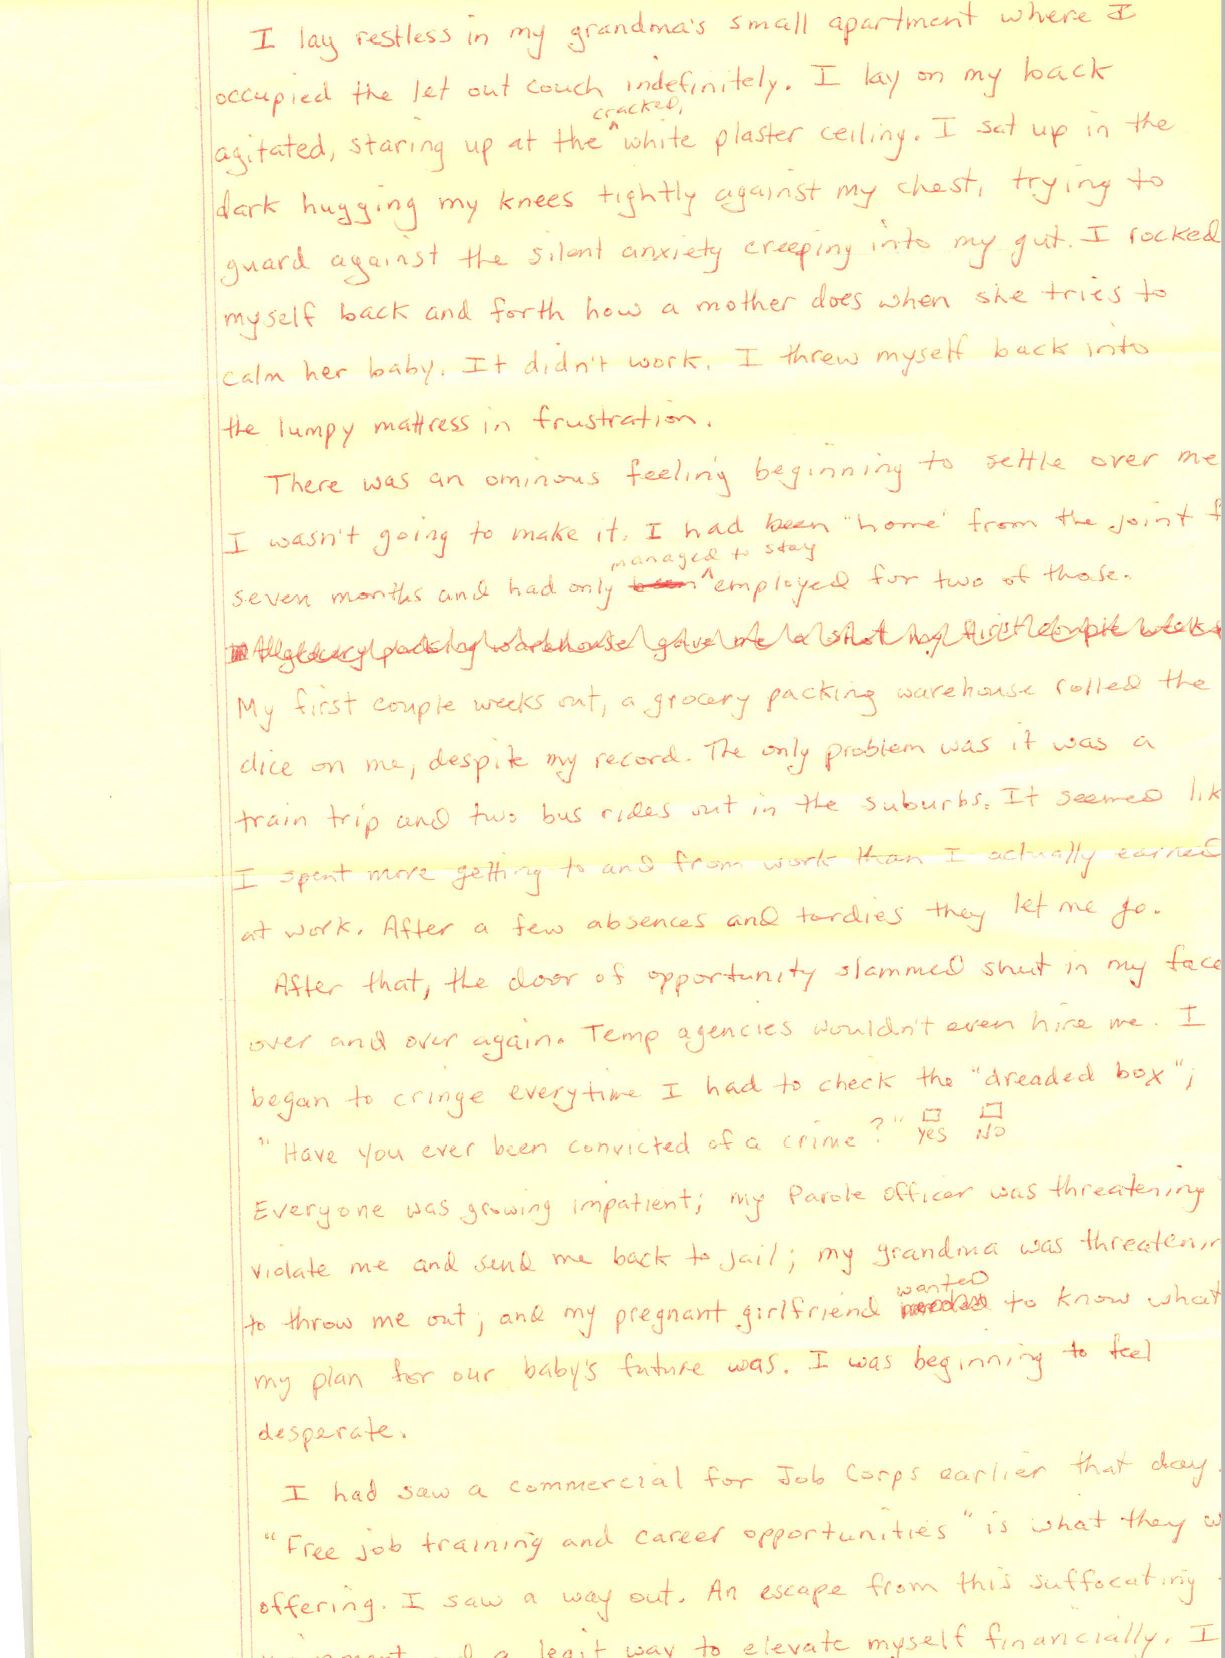 I lay restless in my grandma's small apartment where I
occupied the let out couch indefinitely. I lay on my back
cracked,
agitated, staring up at the ^ white plaster ceiling. I sat up in the
dark hugging my knees tightly against my chest, trying to
guard against the silent anxiety creeping into my gut. I rocked
myself back and forth how a mother does when she tries to
calm her baby. It didn't work. I threw myself back into
the lumpy mattress in frustration.
There was an ominous feeling beginning to settle over me
I wasn't going to make it. I had been "home" from the joint f
managed to stay
seven months and had only been ^ employed for two of those.
My first couple weeks out, a grocery packing warehouse rolled the
dice on me, despite my record. The only problem was it was a
train trip and two bus rides out in the suburbs. It seemed lik
I spent more getting to and from work than I actually earned
at work. After a few absences and tardies they let me go.
After that, the door of opportunity slammed shut in my face
over and over again. Temp agencies wouldn't even hire me. I
began to cringe everytime I had to check the "dreaded box";
"Have you ever been convicted of a crime?" □ Yes □ No
Everyone was growing impatient; my Parole officer was threatening
violate me and send me back to jail; my grandma was threatenin
wanted
to throw me out; and my pregnant girlfriend needed to know what
my plan for our baby's future was. I was beginning to feel
desperate.
I had saw a commercial for Job Corps earlier that day.
"Free job training and career opportunities" is what they w
offering. I saw a way out. An escape from this suffocating
a legit way to elevate myself financially. I